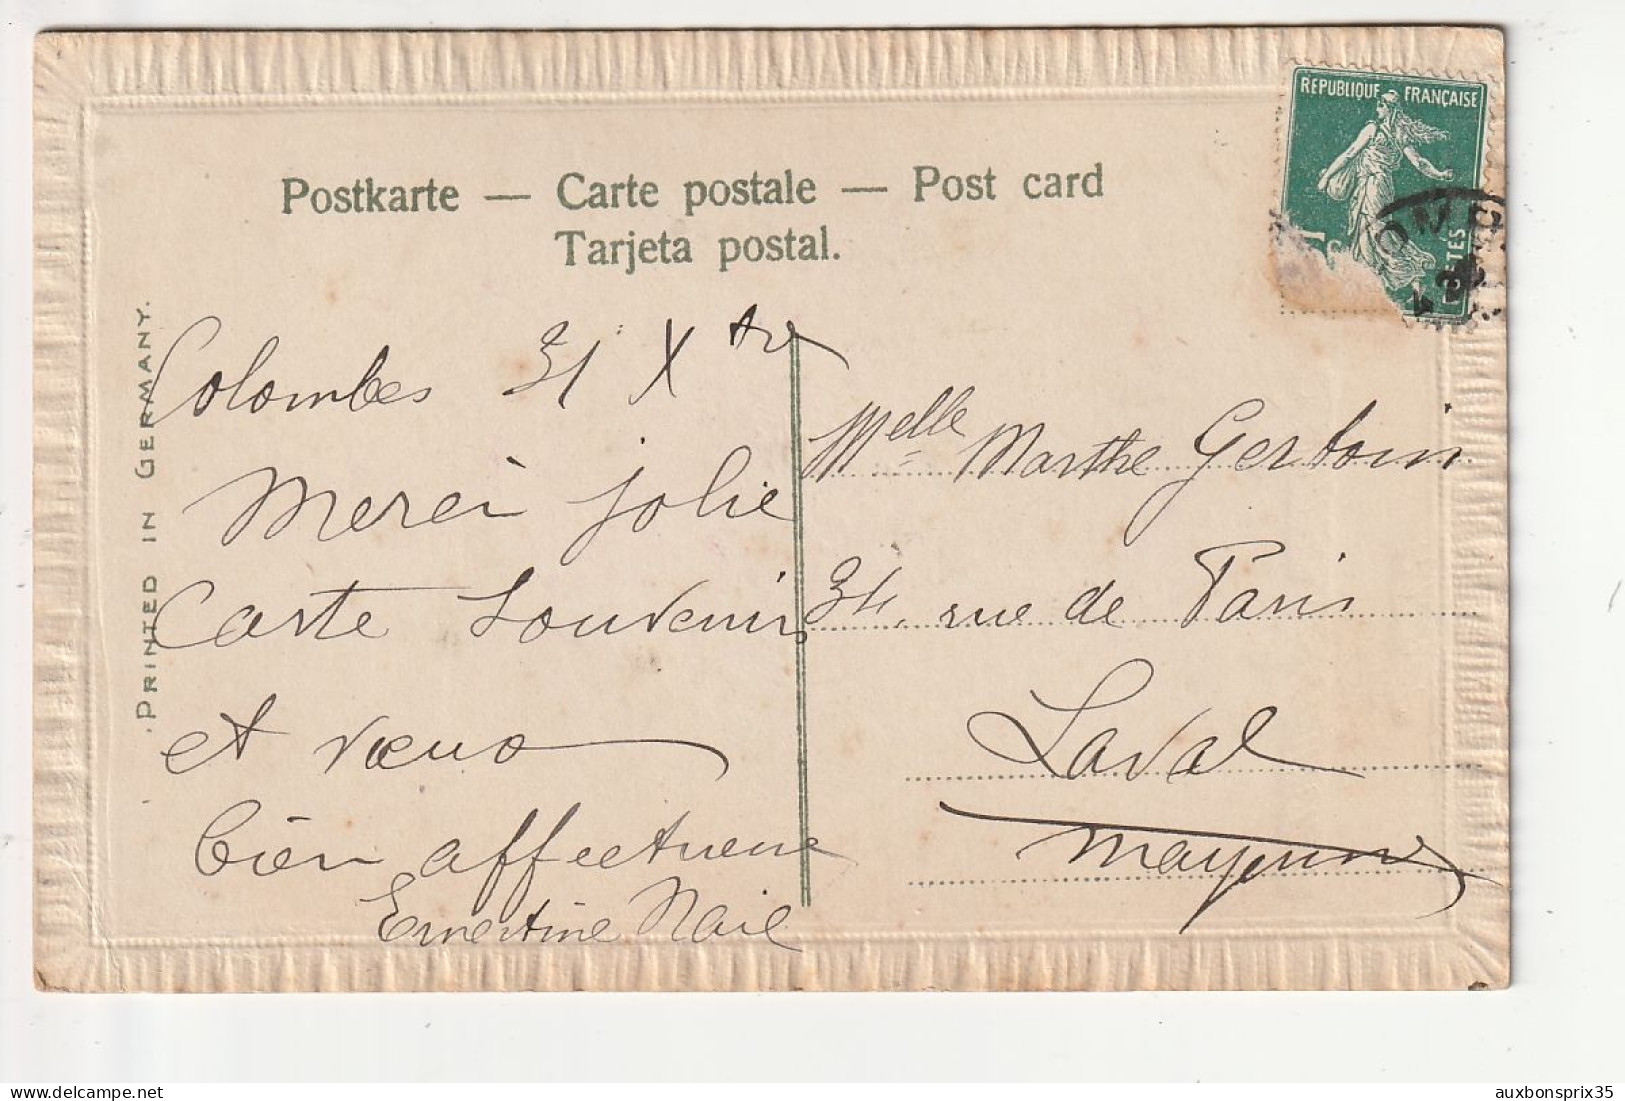 Postkarte — Carte postale — Post card
Tarjeta postal.
REPUBLIQUE FRANÇAISE
PRINTED IN GERMANY.
Colombes 31 Xbre
Merci jolie
Carte Souvenir
et vœux
bien affectueux
Ernestine Nail
Melle Marthe Gerboin
34, rue de Paris
Laval
Mayenne
auxbonsprix35